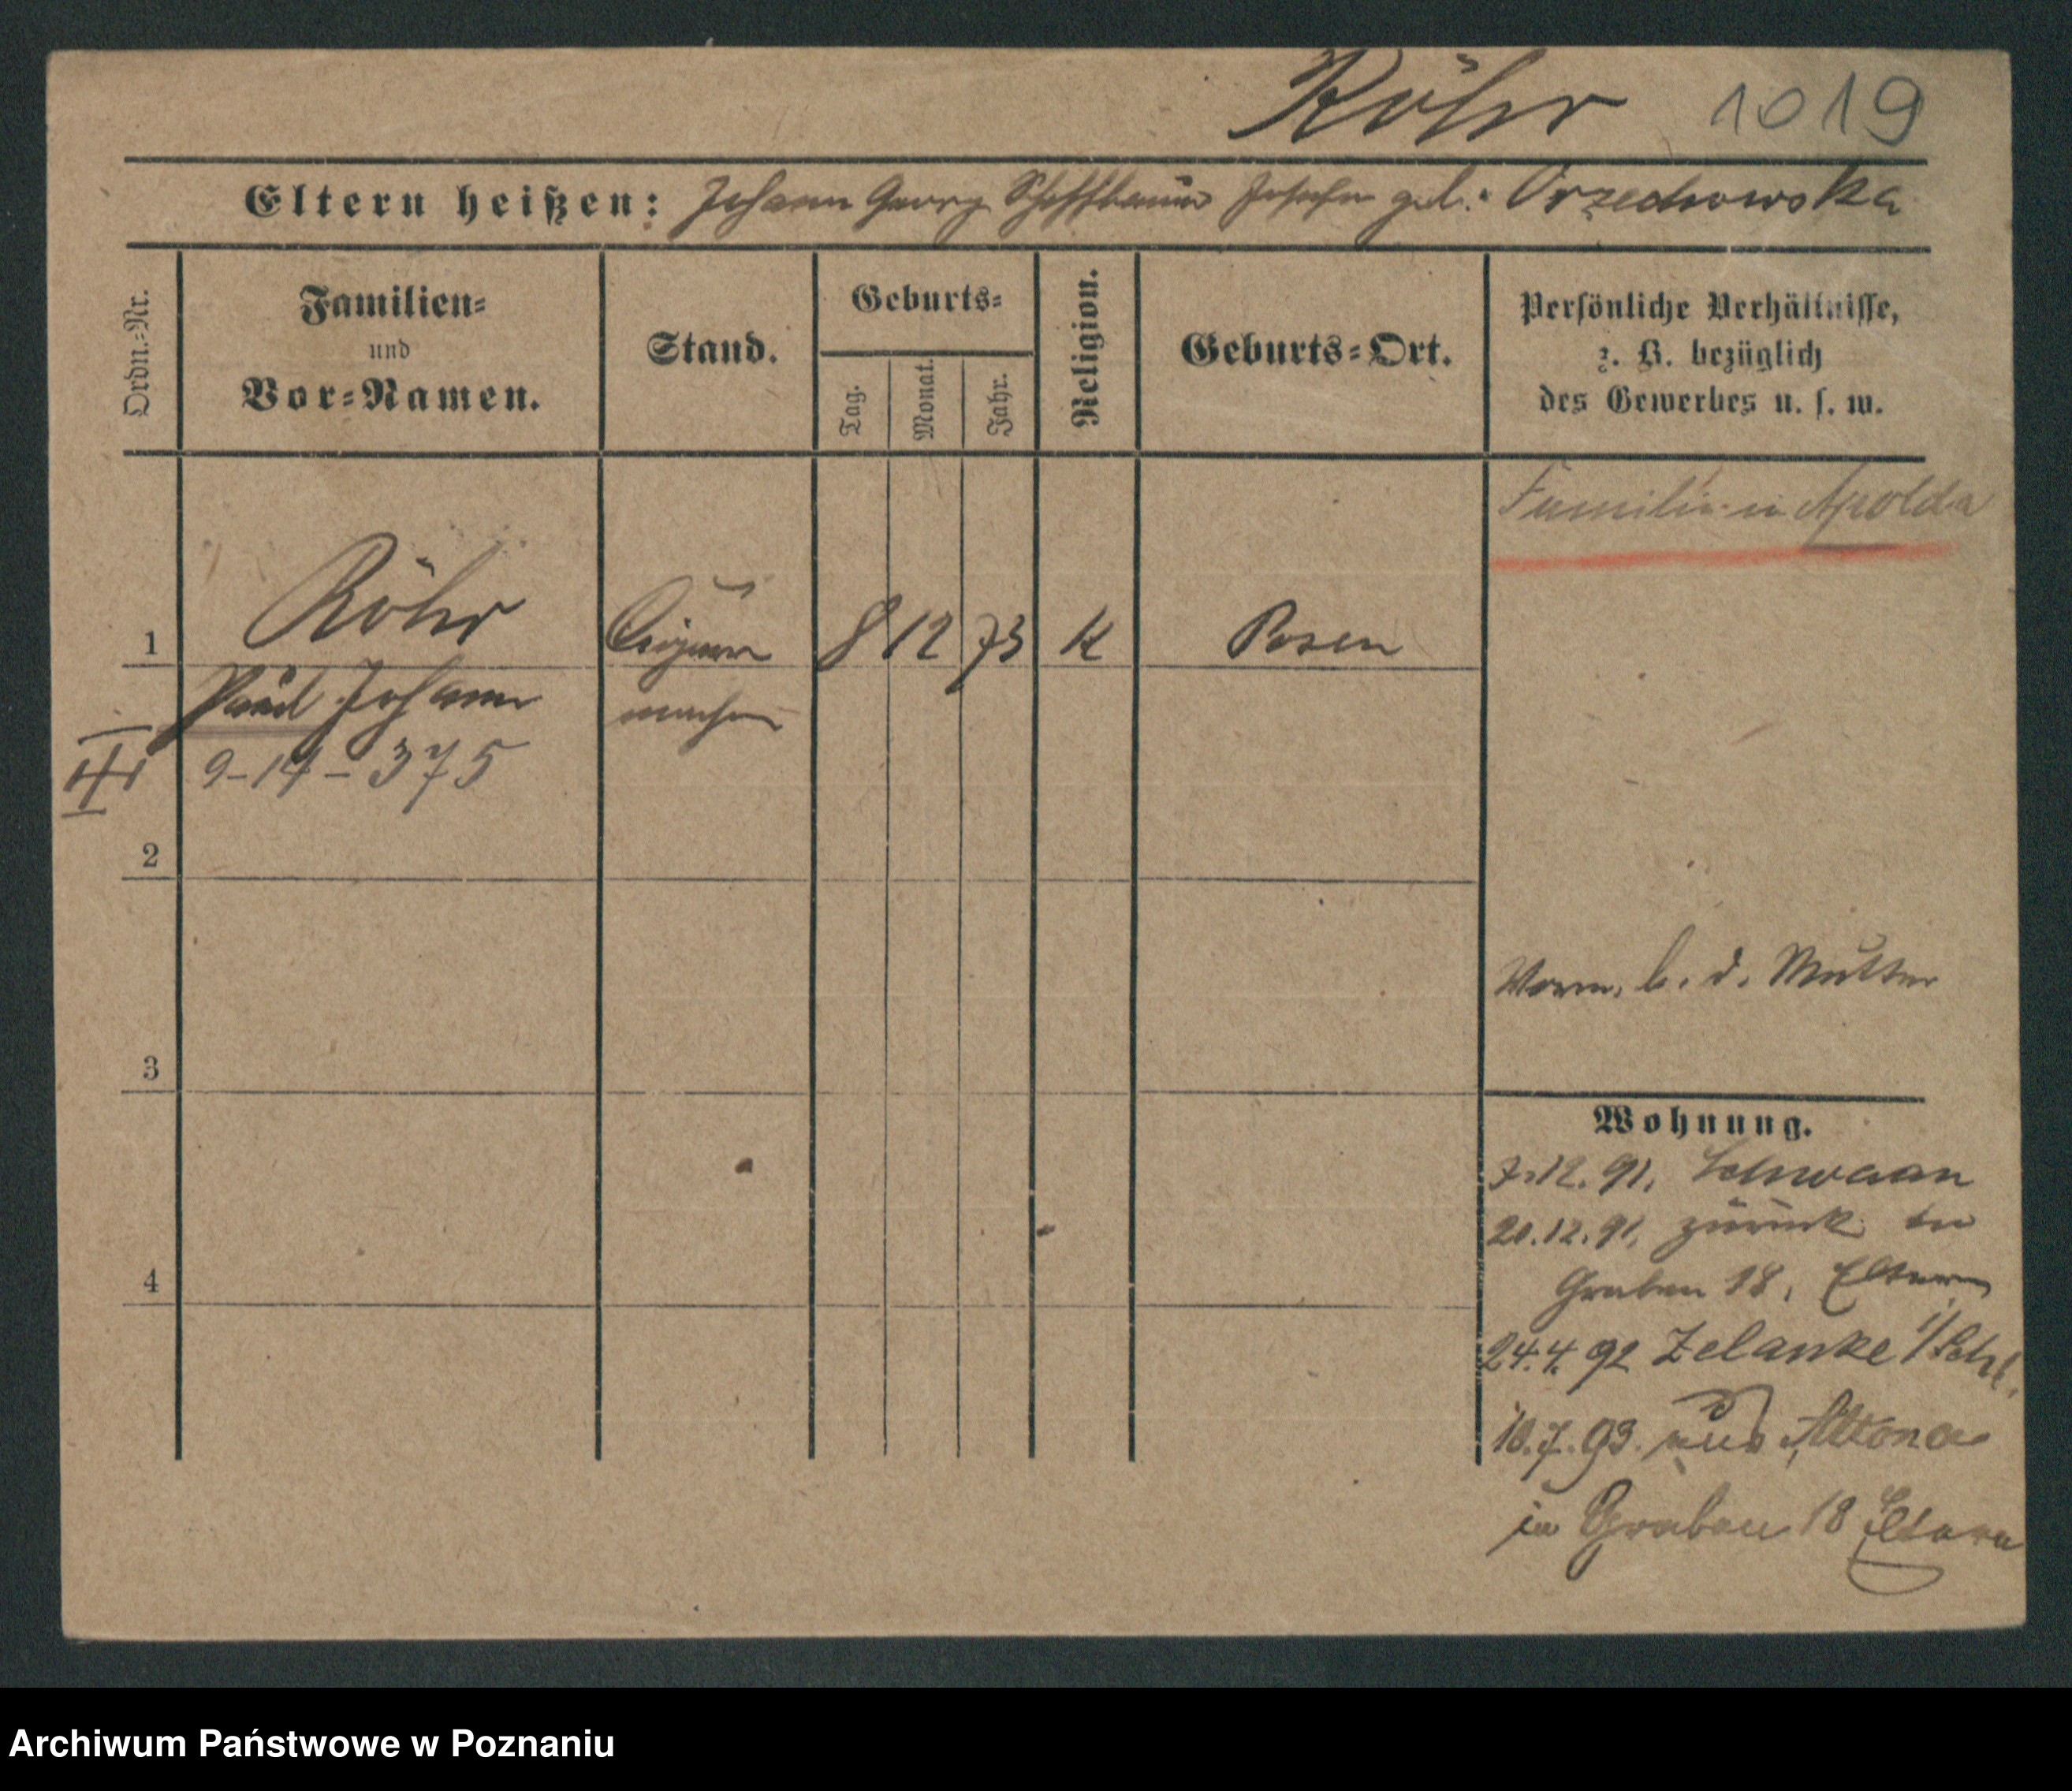 Röhr 1019
Eltern heißen: Johann Georg Josefa geb. Orzechowska
Ordn.=Nr.
Familien=
und
Vor=Namen.
Stand.
Geburts=
Tag.
Monat.
Jahr.
Religion.
Geburts=Ort.
Persönliche Verhältnisse,
z. B. bezüglich
des Gewerbes u. s. w.
Familie in Apolda
1 Röhr Cigarren 8 12 73 K Posen
Paul Johann macher
III 9-14-375
2
Vorm. b. d. Mutter
3
Wohnung.
7.12.91. Schwaan
20.12.91. zurück in
Graben 18, Eltern
4
24.4.92 Zelanke i/Schl.
10.7.93. aus Altona
in Graben 18 Eltern
Archiwum Państwowe w Poznaniu